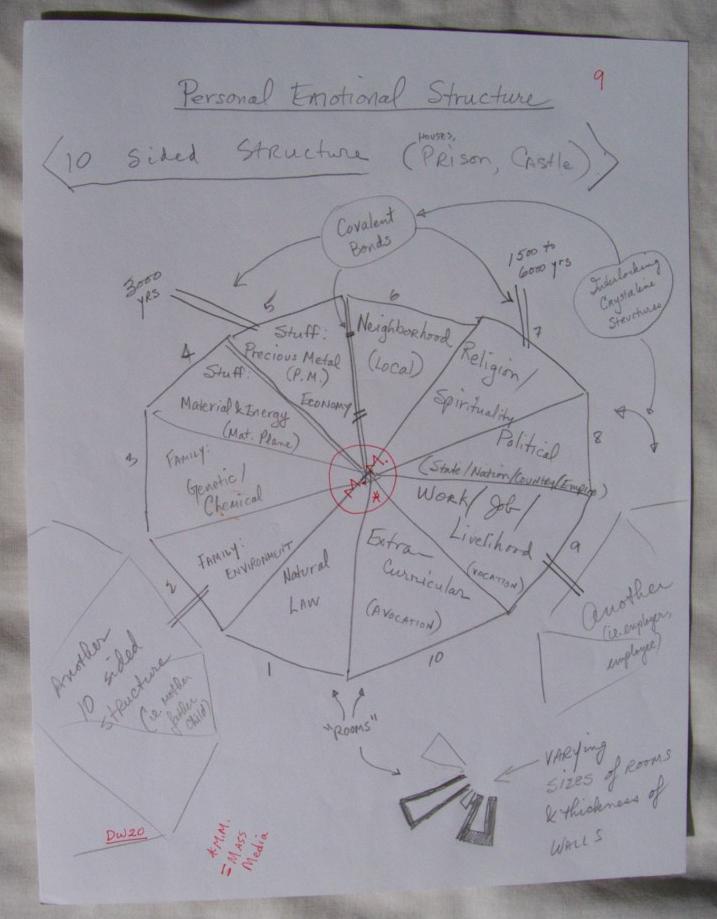 9
Personal Emotional Structure
10 Sided Structure (Houses, Prison, Castle)
Covalent
Bonds
3000
yrs
1500 to
6000 yrs
Interlocking
Crystalline
Structures
5
6
7
4
Stuff:
Precious Metal
(P.M.)
Economy
Neighborhood
(Local)
Religion/
Spirituality
Stuff:
Material & Energy
(Mat. Plane)
Political
(State/Nation/Country/Empire)
8
3
Family:
Genetic/
Chemical
M.M.
*
Work/Job/
Livelihood
(Vocation)
9
2
Family:
Environment
Natural
Law
Extra-
Curricular
(Avocation)
1
10
Another
10 sided
structure
(ie. mother
father
child)
Another
(i.e. employer,
employee)
"Rooms"
Varying
sizes of rooms
& thickness of
walls
DW20
* M.M.
= Mass
Media